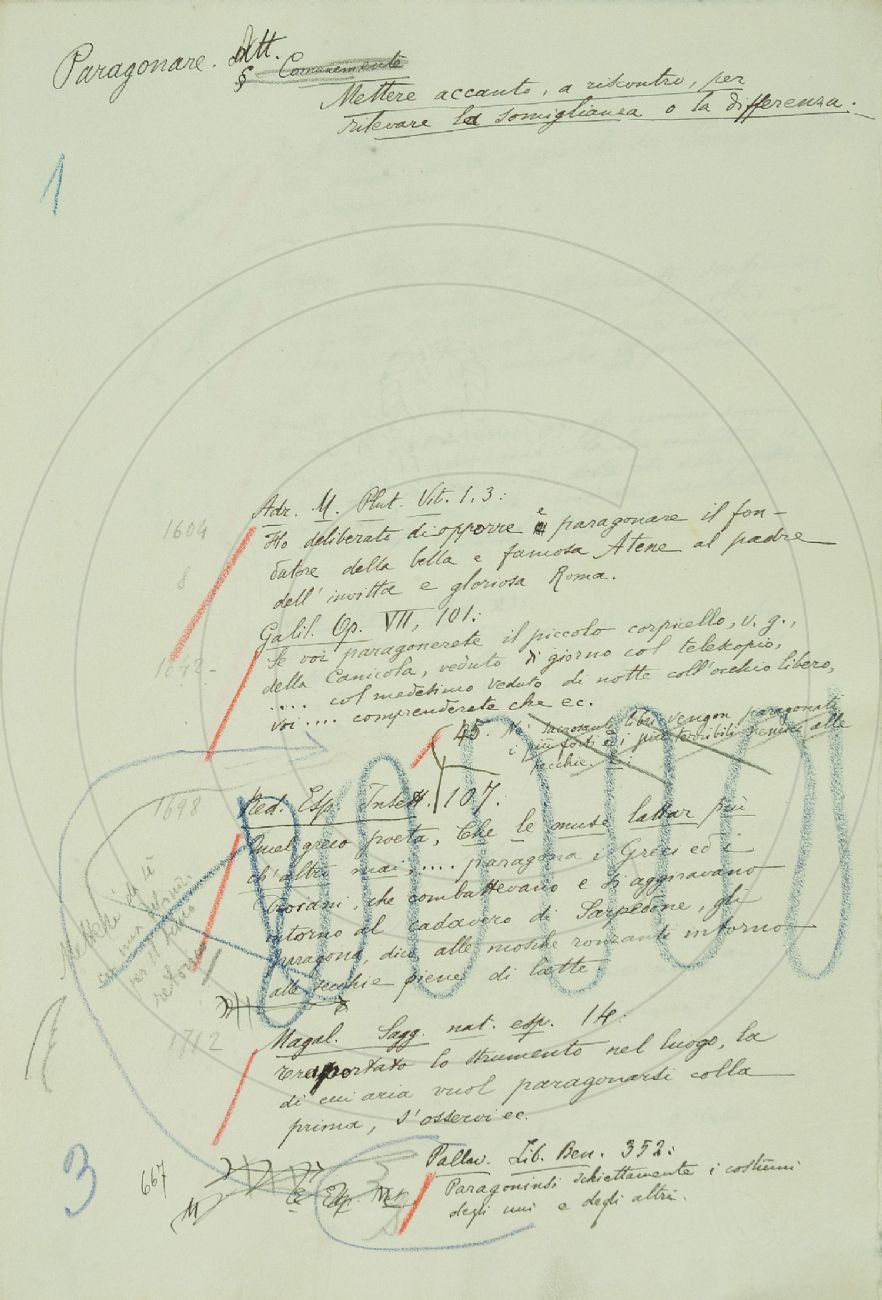 Paragonare. Att.
§ Comunemente
Mettere accanto, a riscontro, per
rilevare la somiglianza o la differenza.
1
Adr. M. Plut. Vit. 1. 3:
1604
Ho deliberato di opporre e paragonare il fon-
datore della bella e famosa Atene al padre
8
dell' invitta e gloriosa Roma.
Galil. Op. VII, 101:
Se voi paragonerete il piccolo corpicello, v. g.,
1642-
della Canicola, veduto di giorno col telescopio,
.... col medesimo veduto di notte coll'occhio libero,
voi .... comprenderete che ec.
45. Nè sacrosanti libri vengon paragonati
i più forti ed i più terribili nemici alle
pecchie.
1698
Red. Esp. Insett. 107:
Quel greco poeta, Che le muse lattar più
ch' altri mai, .... paragona i Greci ed i
Troiani, che combattevano e si aggiravano
intorno al cadavero di Sarpedone, gli
paragona, dico, alle mosche ronzanti intorno
alle secchie piene di latte.
Metterei da sè
1712
Magal. Sagg. nat. esp. 14:
Trasportato lo strumento nel luogo, la
di cui aria vuol paragonarsi colla
prima, s'osservi ec.
3
667
Pallav. Lib. Ben. 352:
Paragoninsi schiettamente i costumi
degli uni e degli altri.